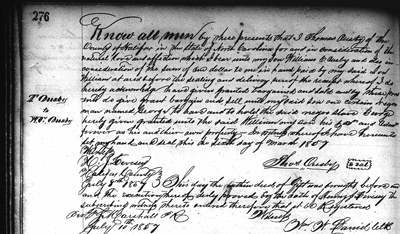 276
Know all men by these presents that I Thomas Ousby of the
County of Halifax in the State of North Carolina for and in consideration of the
natural love and affection which I bear unto my Son William Ousby and also in
consideration of the sum of one dollar to me in hand paid by my said Son
William at and before the sealing and delivery hereof the receipt whereof I do
hereby acknowledge have given granted bargained and sold and by these pres-
ents do give grant bargain and sell unto my said Son one certain negro
man named George To have and to hold the said negro slave George
hereby given granted unto the said William and
forever as his and their own property. In testimony whereof I have hereunto
set my hand and Seal this the day of March 1857
T Ousby
to
Wm Ousby
Witness
Thos Ousby Seal
Halifax County
July 8th 1857 This day the within deed of Gift was brought before
me and the execution thereof duly proved by the oath of the
subscribing witness thereto ordered therefore that it be Registered
Witness
July 10 1857
Wm H Daniel Clk